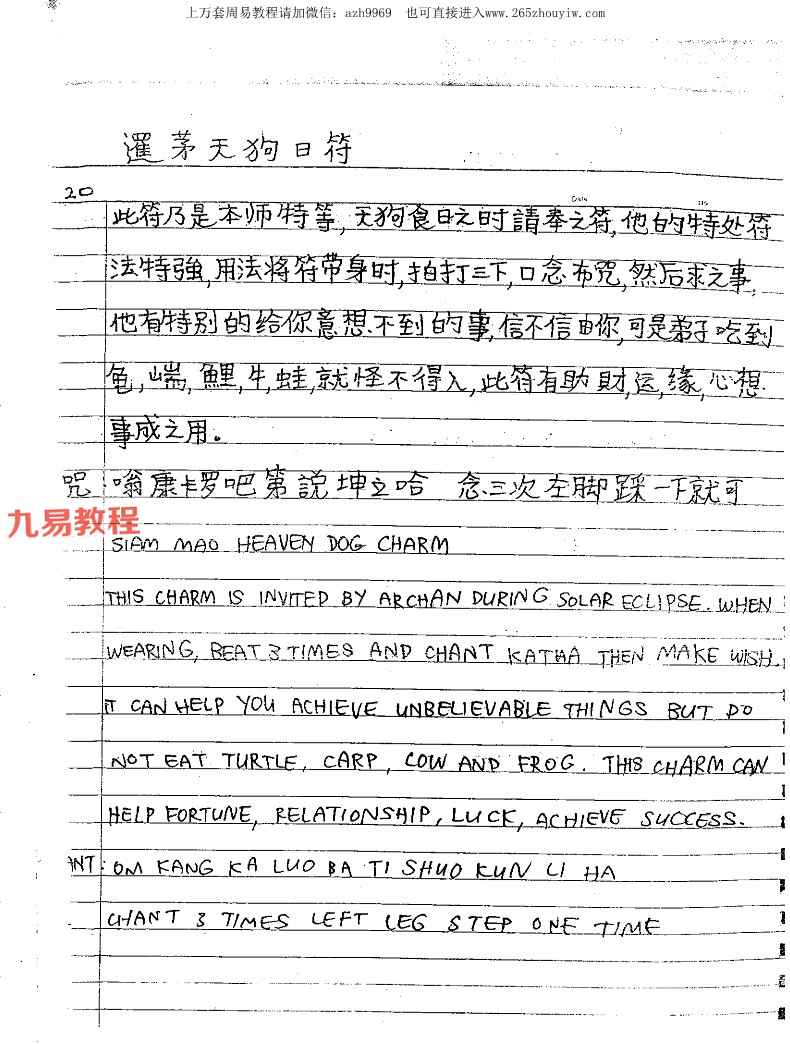 上万套周易教程请加微信：azh9969　也可直接进入www.265zhouyiw.com
暹茅天狗日符
20
此符乃是本师特等,天狗食日之时請奉之符,他的特处符
法特強,用法将符带身时,拍打三下,口念布咒,然后求之事,
他有特别的给你意想不到的事,信不信由你,可是弟子吃到
龟,鯉,牛,蛙,就怪不得人,此符有助財,运,缘,心想
事成之用。
咒:嗡康卡罗吧第説坤立哈 念三次左脚踩一下就可
九易教程
SIAM MAO HEAVEN DOG CHARM
THIS CHARM IS INVITED BY ARCHAN DURING SOLAR ECLIPSE. WHEN
WEARING, BEAT 3 TIMES AND CHANT KATHA THEN MAKE WISH.
IT CAN HELP YOU ACHIEVE UNBELIEVABLE THINGS BUT DO
NOT EAT TURTLE, CARP, COW AND FROG. THIS CHARM CAN
HELP FORTUNE, RELATIONSHIP, LUCK, ACHIEVE SUCCESS.
ANT: OM KANG KA LUO BA TI SHUO KUN LI HA
CHANT 3 TIMES LEFT LEG STEP ONE TIME